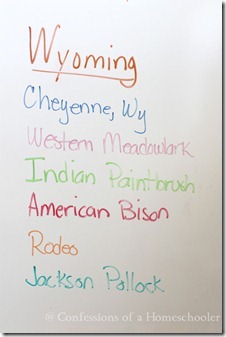 Wyoming
Cheyenne, Wy
Western Meadowlark
Indian Paintbrush
American Bison
Rodeo
Jackson Pollock
@ Confessions of a Homeschooler